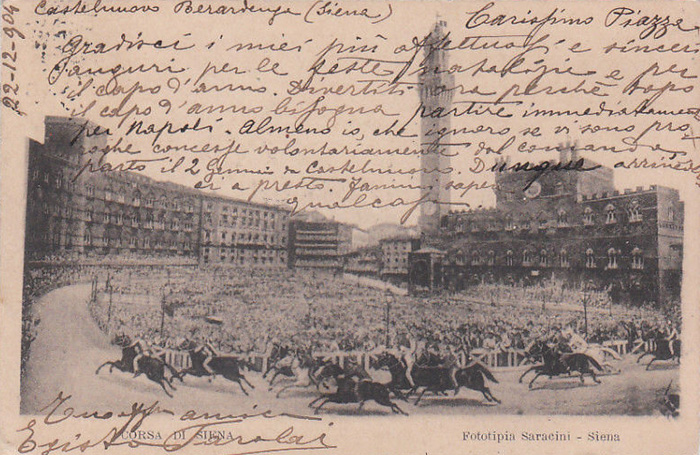 22-12-904
Castelnuovo Berardenga (Siena)
Carissimo Piazza
Gradisci i miei più affettuosi e sinceri
auguri per le feste natalizie e per
il capo d'anno. Divertiti ora perchè dopo
il capo d'anno bisogna partire immediatamente
per Napoli. Almeno io, che ignoro se vi sono pro
roghe concesse volontariamente dal comando
parto il 2 Gennaio da Castelnuovo. Dunque
a presto. Fammi sapere
qualcosa
Tuo aff amico
Egisto
CORSA DI SIENA
Fototipia Saracini - Siena